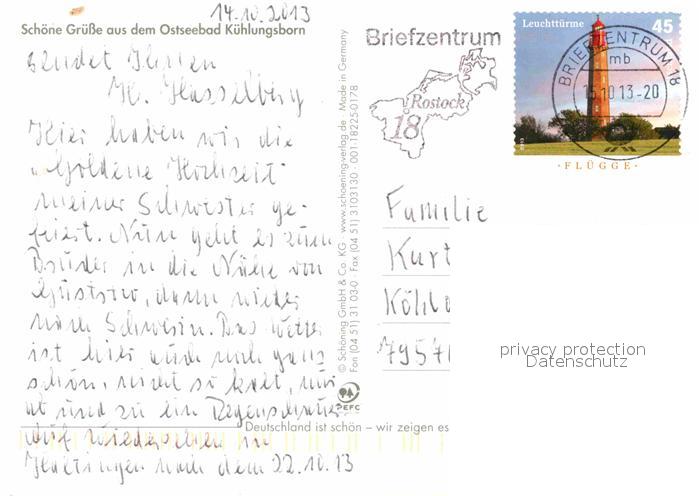 14.10.2013
Schöne Grüße aus dem Ostseebad Kühlungsborn
sendet Ihnen
H. Hasselberg
Hier haben wir die
Goldene Hochzeit
meiner Schwester ge-
feiert. Nun geht es zum
Bruder in die Nähe von
Güstrow, dann wieder
nach Schwerin. Das Wetter
ist hier auch noch ganz
schön, nicht so kalt, nur
ab und zu ein Regenschauer.
Auf Wiedersehen in
Haltingen nach dem 22.10.13
© Schöning GmbH & Co. KG · www.schoening-verlag.de · Made in Germany
Fon (04 51) 31 03-0 · Fax (04 51) 3103130 · 001-18225-0178
PEFC
Deutschland ist schön – wir zeigen es
Briefzentrum
Rostock
18
Leuchttürme 45
BRIEFZENTRUM 18
mb
15.10.13-20
·FLÜGGE·
Familie
Kurt
7957
privacy protection
Datenschutz